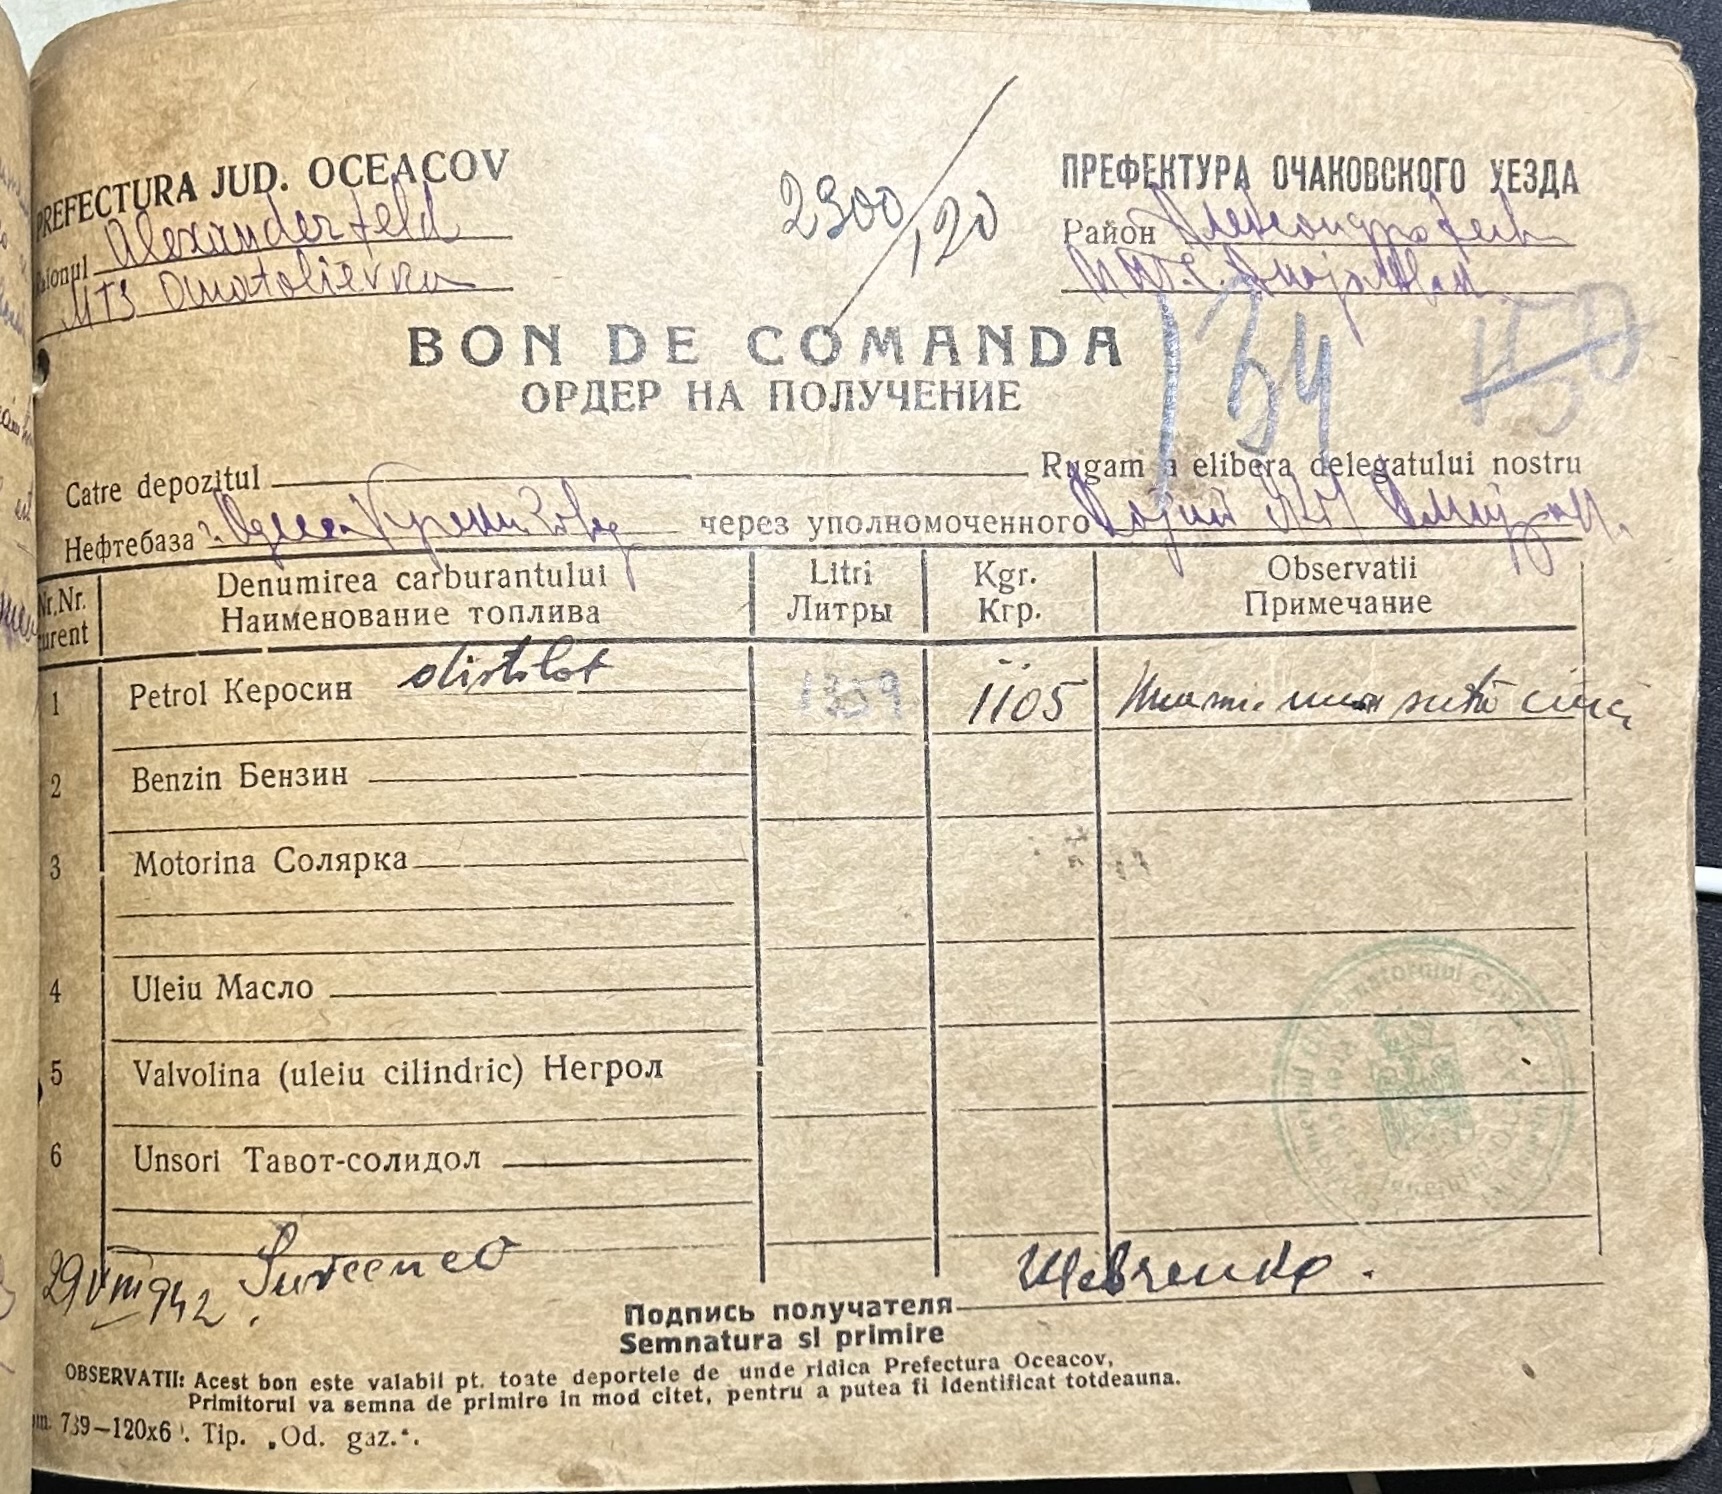 PREFECTURA JUD. OCEACOV
Raionul Alexanderfeld
MTS Anatolievka
2900/,20
ПРЕФЕКТУРА ОЧАКОВСКОГО УЕЗДА
Район
BON DE COMANDA
ОРДЕР НА ПОЛУЧЕНИЕ
134
150
Catre depozitul Rugam a elibera delegatului nostru
Нефтебаза г. Одесса через уполномоченного
Nr.Nr. curent Denumirea carburantului Litri Kgr. Observatii
Наименование топлива Литры Кгр. Примечание
1 Petrol Керосин distilat 1359 1105 Una mie una sută cinci
2 Benzin Бензин
3 Motorina Солярка
4 Uleiu Масло
5 Valvolina (uleiu cilindric) Негрол
6 Unsori Тавот-солидол
29 VIII 942.
Шевченко.
Подпись получателя
Semnatura si primire
OBSERVATII: Acest bon este valabil pt. toate deportele de unde ridica Prefectura Oceacov,
Primitorul va semna de primire in mod citet, pentru a putea fi identificat totdeauna.
739—120x6 . Tip. „Od. gaz.".